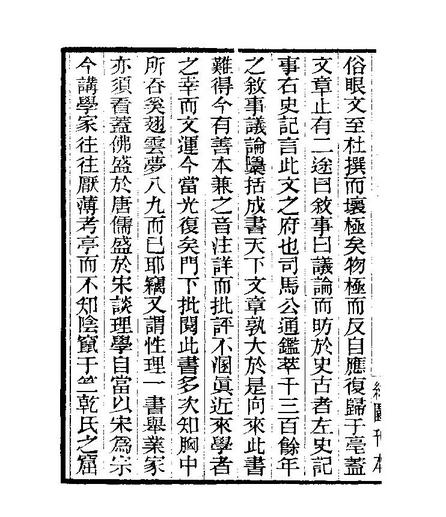 俗眼文至杜撰而壞極矣物極而反自應復歸于亳蓋
文章止有二途曰敘事曰議論而昉於史古者左史記
事右史記言此文之府也司馬公通鑑萃千三百餘年
之敘事議論檃括成書天下文章孰大於是向來此書
難得今有善本兼之音注詳而批評不溷眞近來學者
之幸而文運今當光復矣門下批閱此書多次知胸中
所吞奚翅雲夢八九而已耶竊又謂性理一書舉業家
亦須看蓋佛盛於唐儒盛於宋談理學自當以宋爲宗
今講學家往往厭薄考亭而不知陰竄于竺乾氏之窟
園刊本